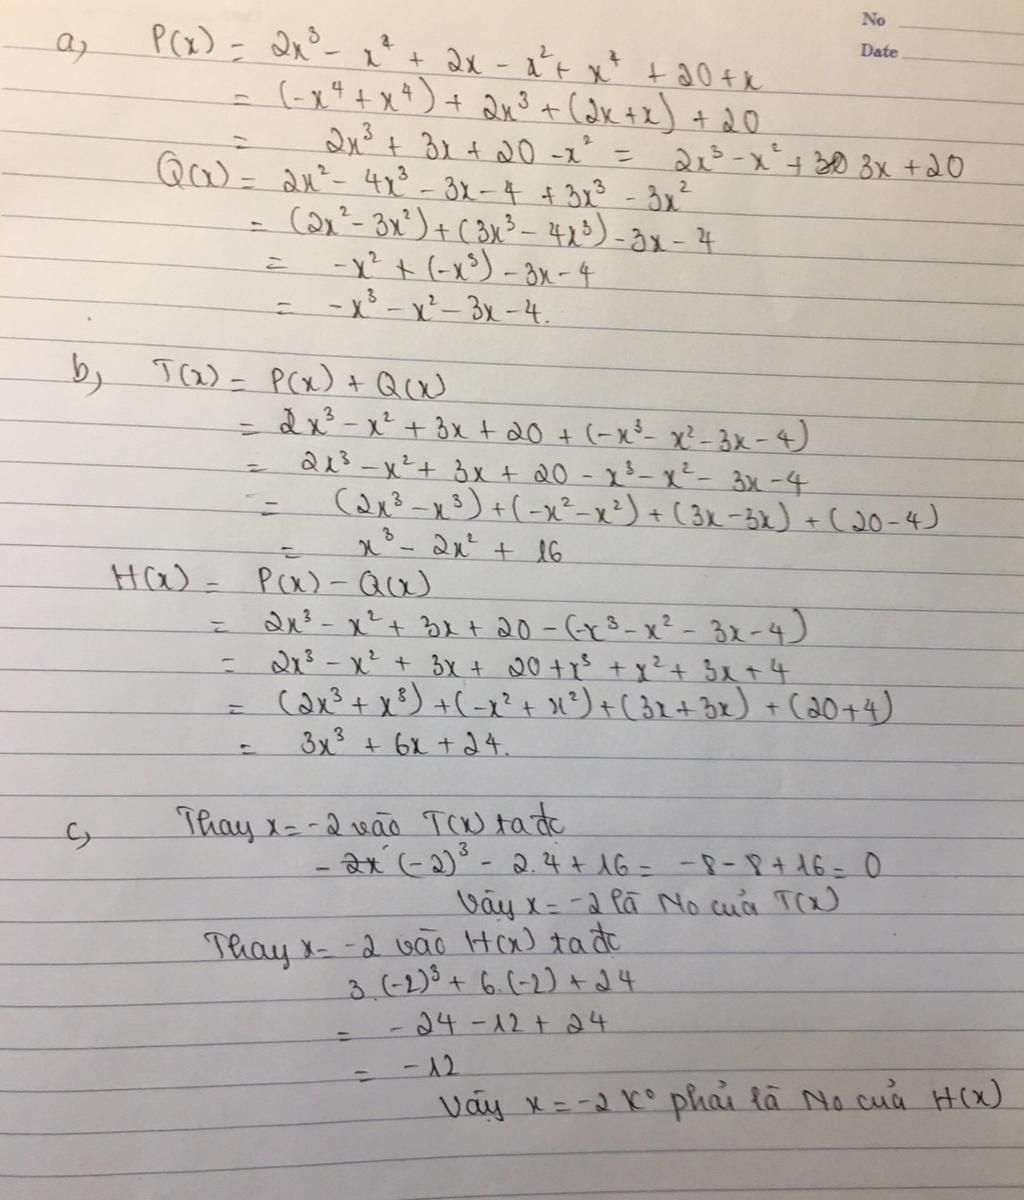 No
Date
a, P(x) = 2x³ - x⁴ + 2x - x² + x⁴ + 20 + x
= (-x⁴ + x⁴) + 2x³ + (2x + x) + 20
= 2x³ + 3x + 20 - x² = 2x³ - x² + 3x + 20
Q(x) = 2x² - 4x³ - 3x - 4 + 3x³ - 3x²
= (2x² - 3x²) + (3x³ - 4x³) - 3x - 4
= -x² + (-x³) - 3x - 4
= -x³ - x² - 3x - 4.
b, T(x) = P(x) + Q(x)
= 2x³ - x² + 3x + 20 + (-x³ - x² - 3x - 4)
= 2x³ - x² + 3x + 20 - x³ - x² - 3x - 4
= (2x³ - x³) + (-x² - x²) + (3x - 3x) + (20 - 4)
= x³ - 2x² + 16
H(x) = P(x) - Q(x)
= 2x³ - x² + 3x + 20 - (-x³ - x² - 3x - 4)
= 2x³ - x² + 3x + 20 + x³ + x² + 3x + 4
= (2x³ + x³) + (-x² + x²) + (3x + 3x) + (20 + 4)
= 3x³ + 6x + 24.
c, Thay x = -2 vào T(x) ta đc
(-2)³ - 2.4 + 16 = -8 - 8 + 16 = 0
Vậy x = -2 là No của T(x)
Thay x = -2 vào H(x) ta đc
3.(-2)³ + 6.(-2) + 24
= -24 - 12 + 24
= -12
Vậy x = -2 K° phải là No của H(x)